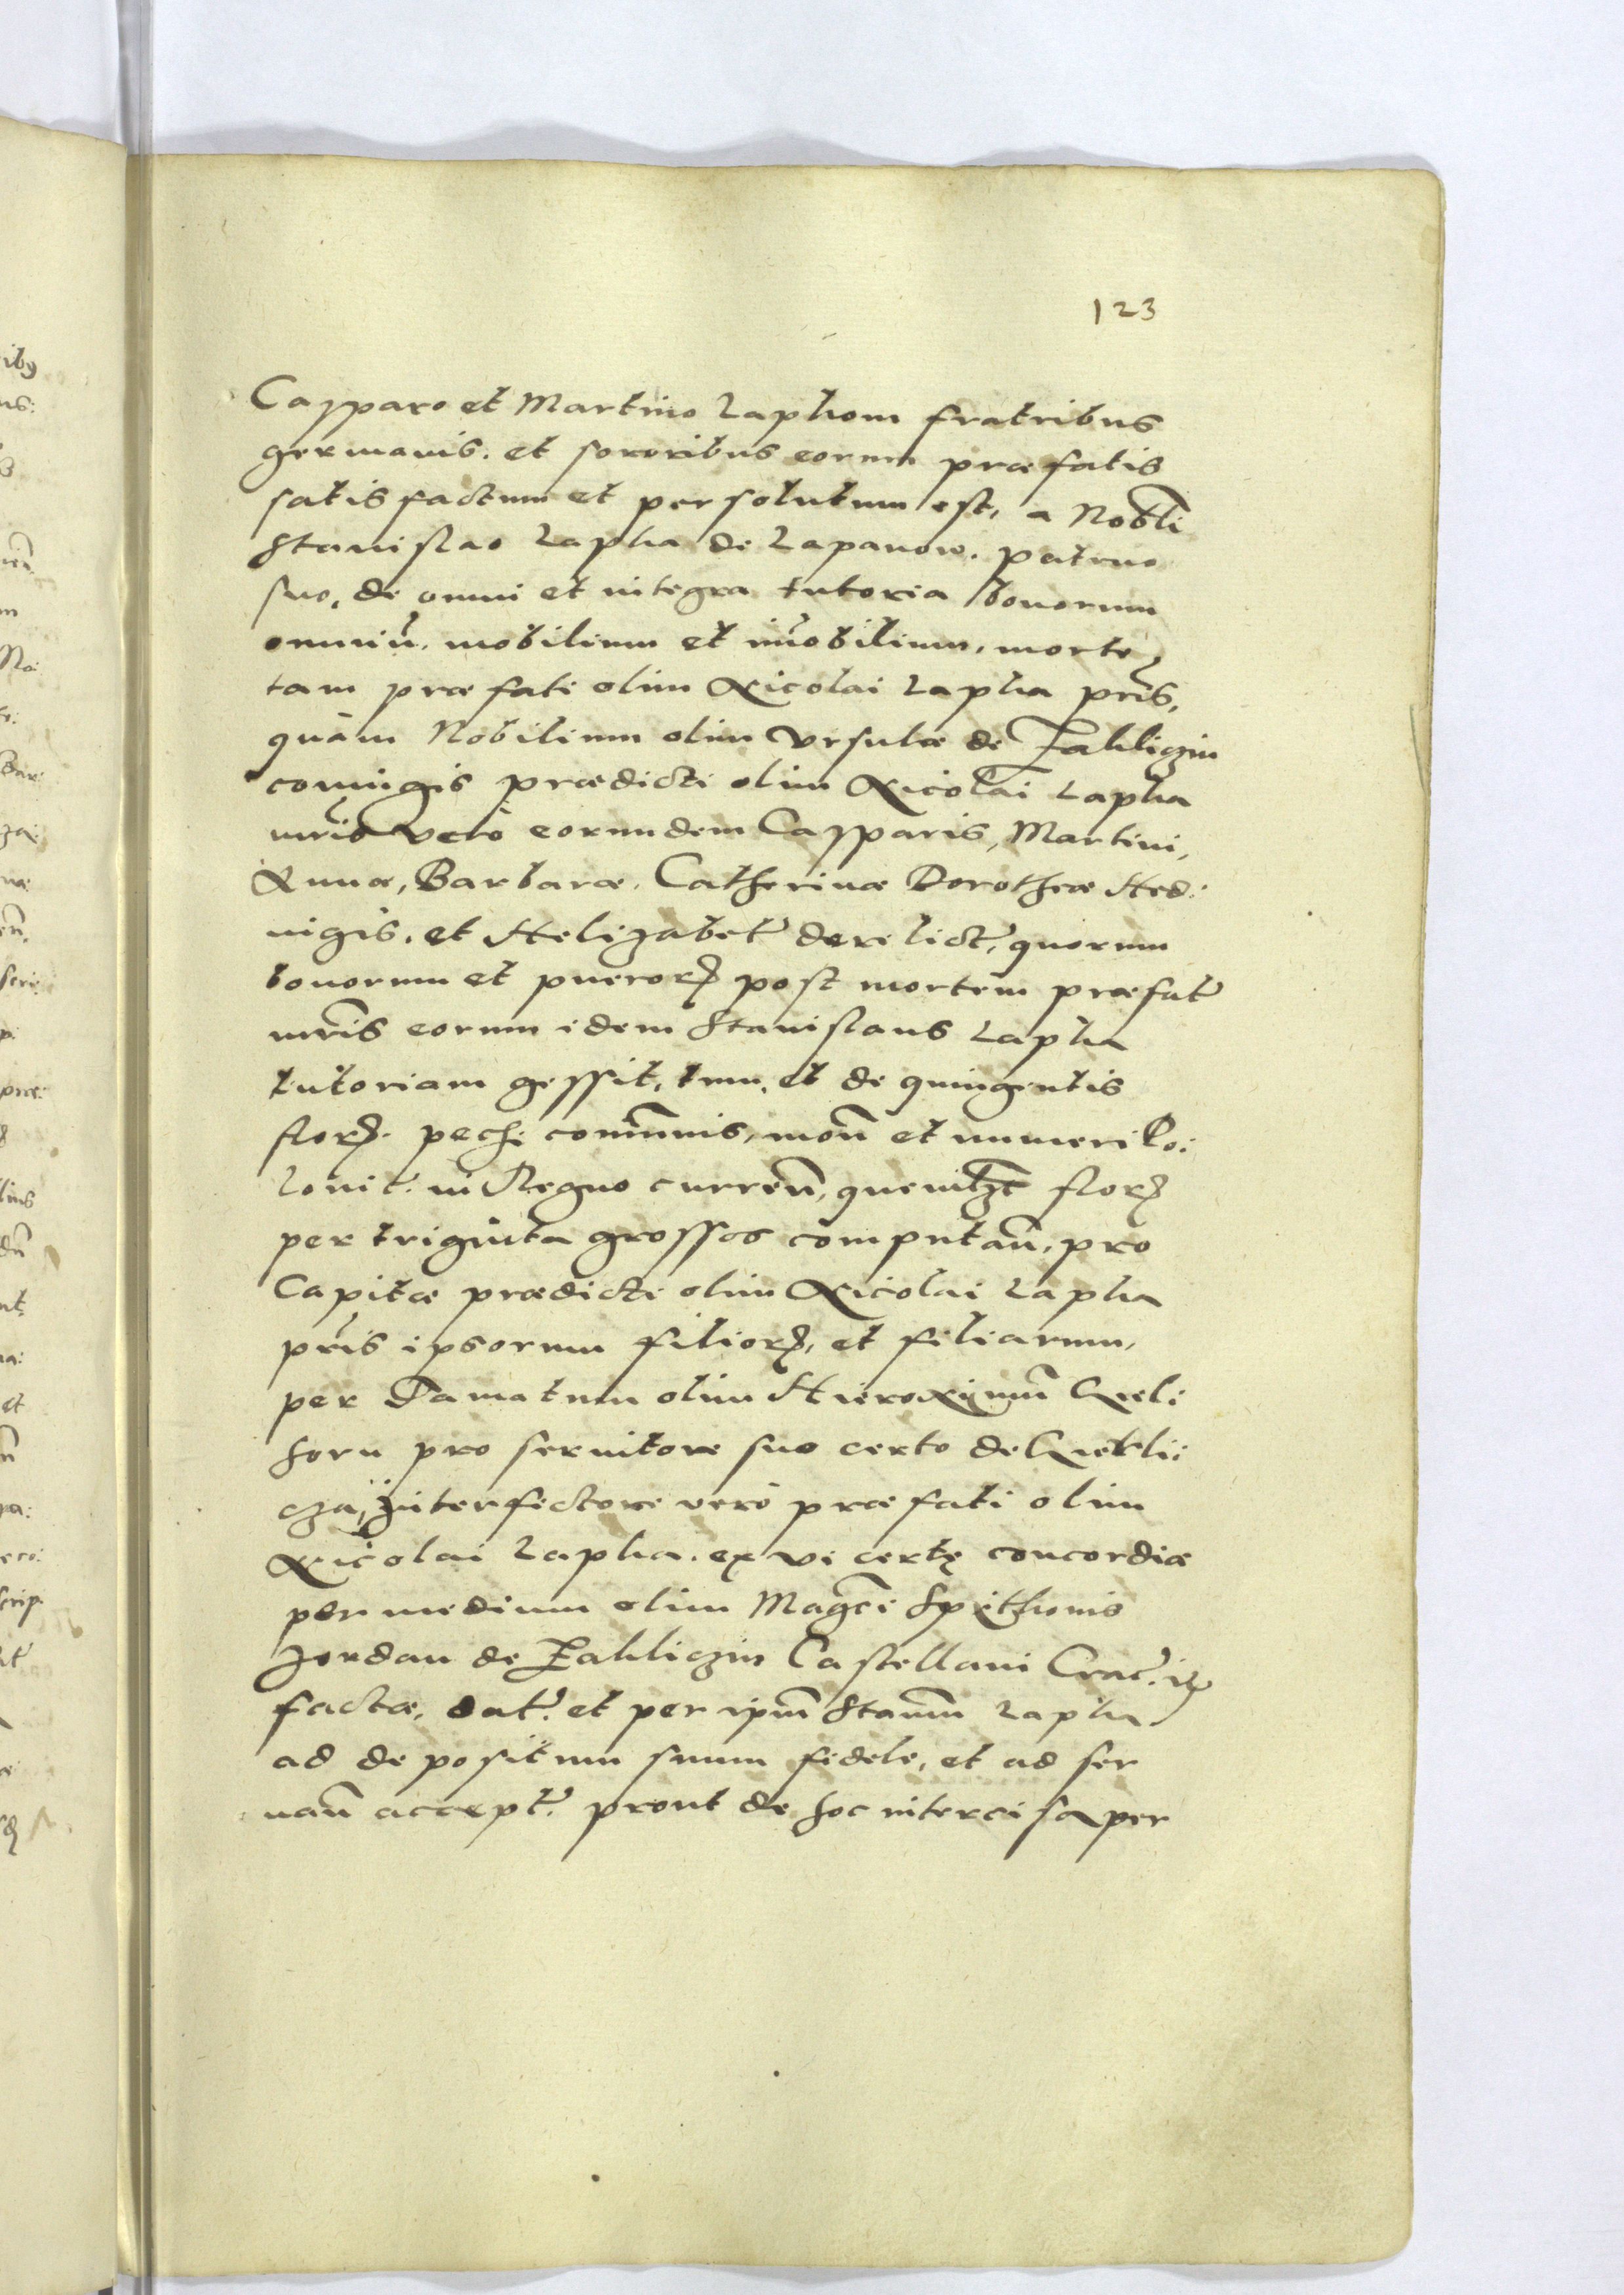 123
Casparo et Martino Laphom fratribus
germanis. et sororibus eorum præfatis
satisfactum et persolutum est, a Nobli
Stanislao Lapha de Lapanow. patruo
suo, de omni et integra tutoria bonorum
omniū. mobilium et im̃obilium, morte
tam præfati olim Nicolai Lapha pr̃is,
quàm Nobilium olim Ursulæ de Zakliczin
coniugis prædicti olim Nicolai Lapha
mr̃is verò eorundem Casparis, Martini,
Annæ, Barbaræ, Catherinæ Dorotheæ Hed:
uigis. et Helizabet derelict, quorum
bonorum et pueror post mortem præfat
mr̃is eorum idem Stanislaus Lapha
tutoriam gessit, tum. et de quingentis
flor. pech: com̃unis, mon̄ et numeri Po:
lonic. in Regno curren̄, quemlꝫt flor
per triginta grossos computan̄, pro
Capitæ prædicti olim Nicolai Lapha
pr̃is ipsorum filior, et filiarum,
per Damatum olim Hieronimum̄ Kiel:
horn pro seruitore suo certo de
cza, interfectore verò præfati olim
Nicolai Lapha. ex vi certę concordiæ
per medium olim Magci Spithonis
Jordan de Zakliczin Castellani Crac.
factæ, dat. et per ipm̄ Stanm̄ Lapha
ad depositum suum fidele, et ad ser
uan̄ accept. prout de hoc intercisa per